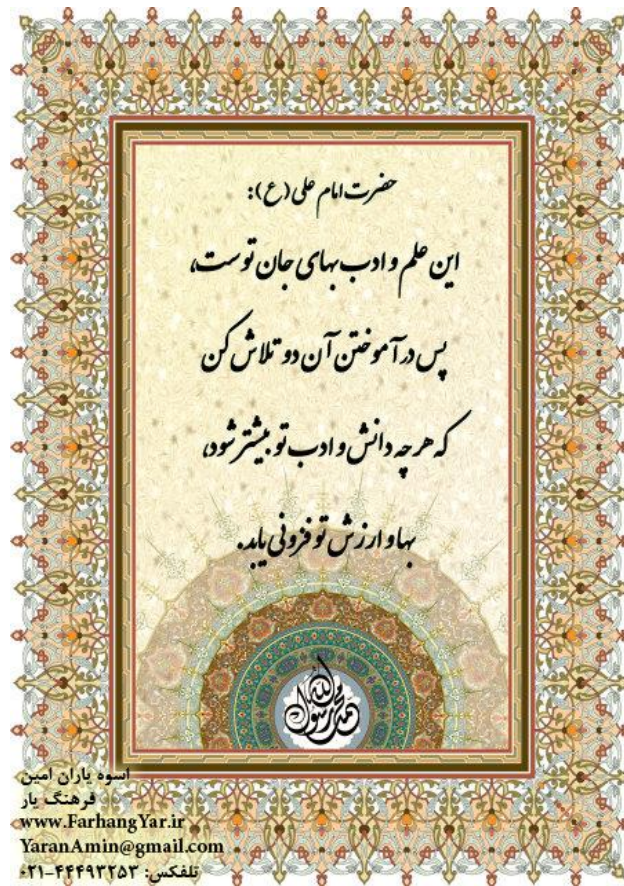 حضرت امام علی (ع):
این علم و ادب بهای جان توست،
پس در آموختن آن دو تلاش کن
که هر چه دانش و ادب تو بیشتر شود،
بها و ارزش تو فزونی یابد.
محمد رسول الله
اسوه یاران امین
فرهنگ یار
www.FarhangYar.ir
YaranAmin@gmail.com
تلفکس: ۴۴۴۹۳۲۵۳-۰۲۱